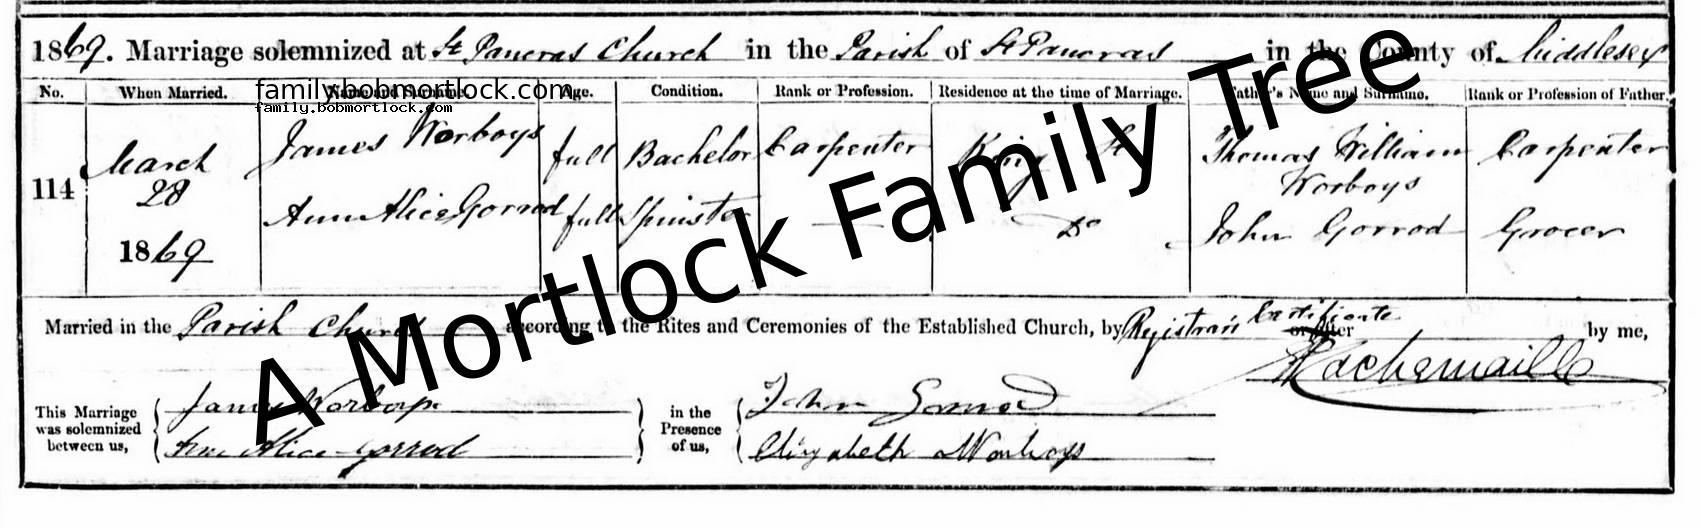 1869. Marriage solemnized at St Pancras Church in the Parish of St Pancras in the County of Middlesex
No. When Married. Name and Surname. Age. Condition. Rank or Profession. Residence at the time of Marriage. Father's Name and Surname. Rank or Profession of Father.
family.bobmortlock.com
family.bobmortlock.com
114 March 28 1869
James Worboys full Bachelor Carpenter King St Thomas William Worboys Carpenter
Ann Alice Gorrod full Spinster — Do John Gorrod Grocer
Married in the Parish Church according to the Rites and Ceremonies of the Established Church, by Registrar's Certificate or after by me,
This Marriage was solemnized between us, James Worboys
Ann Alice Gorrod
in the Presence of us, John Gorrod
Elizabeth Worboys
A Mortlock Family Tree